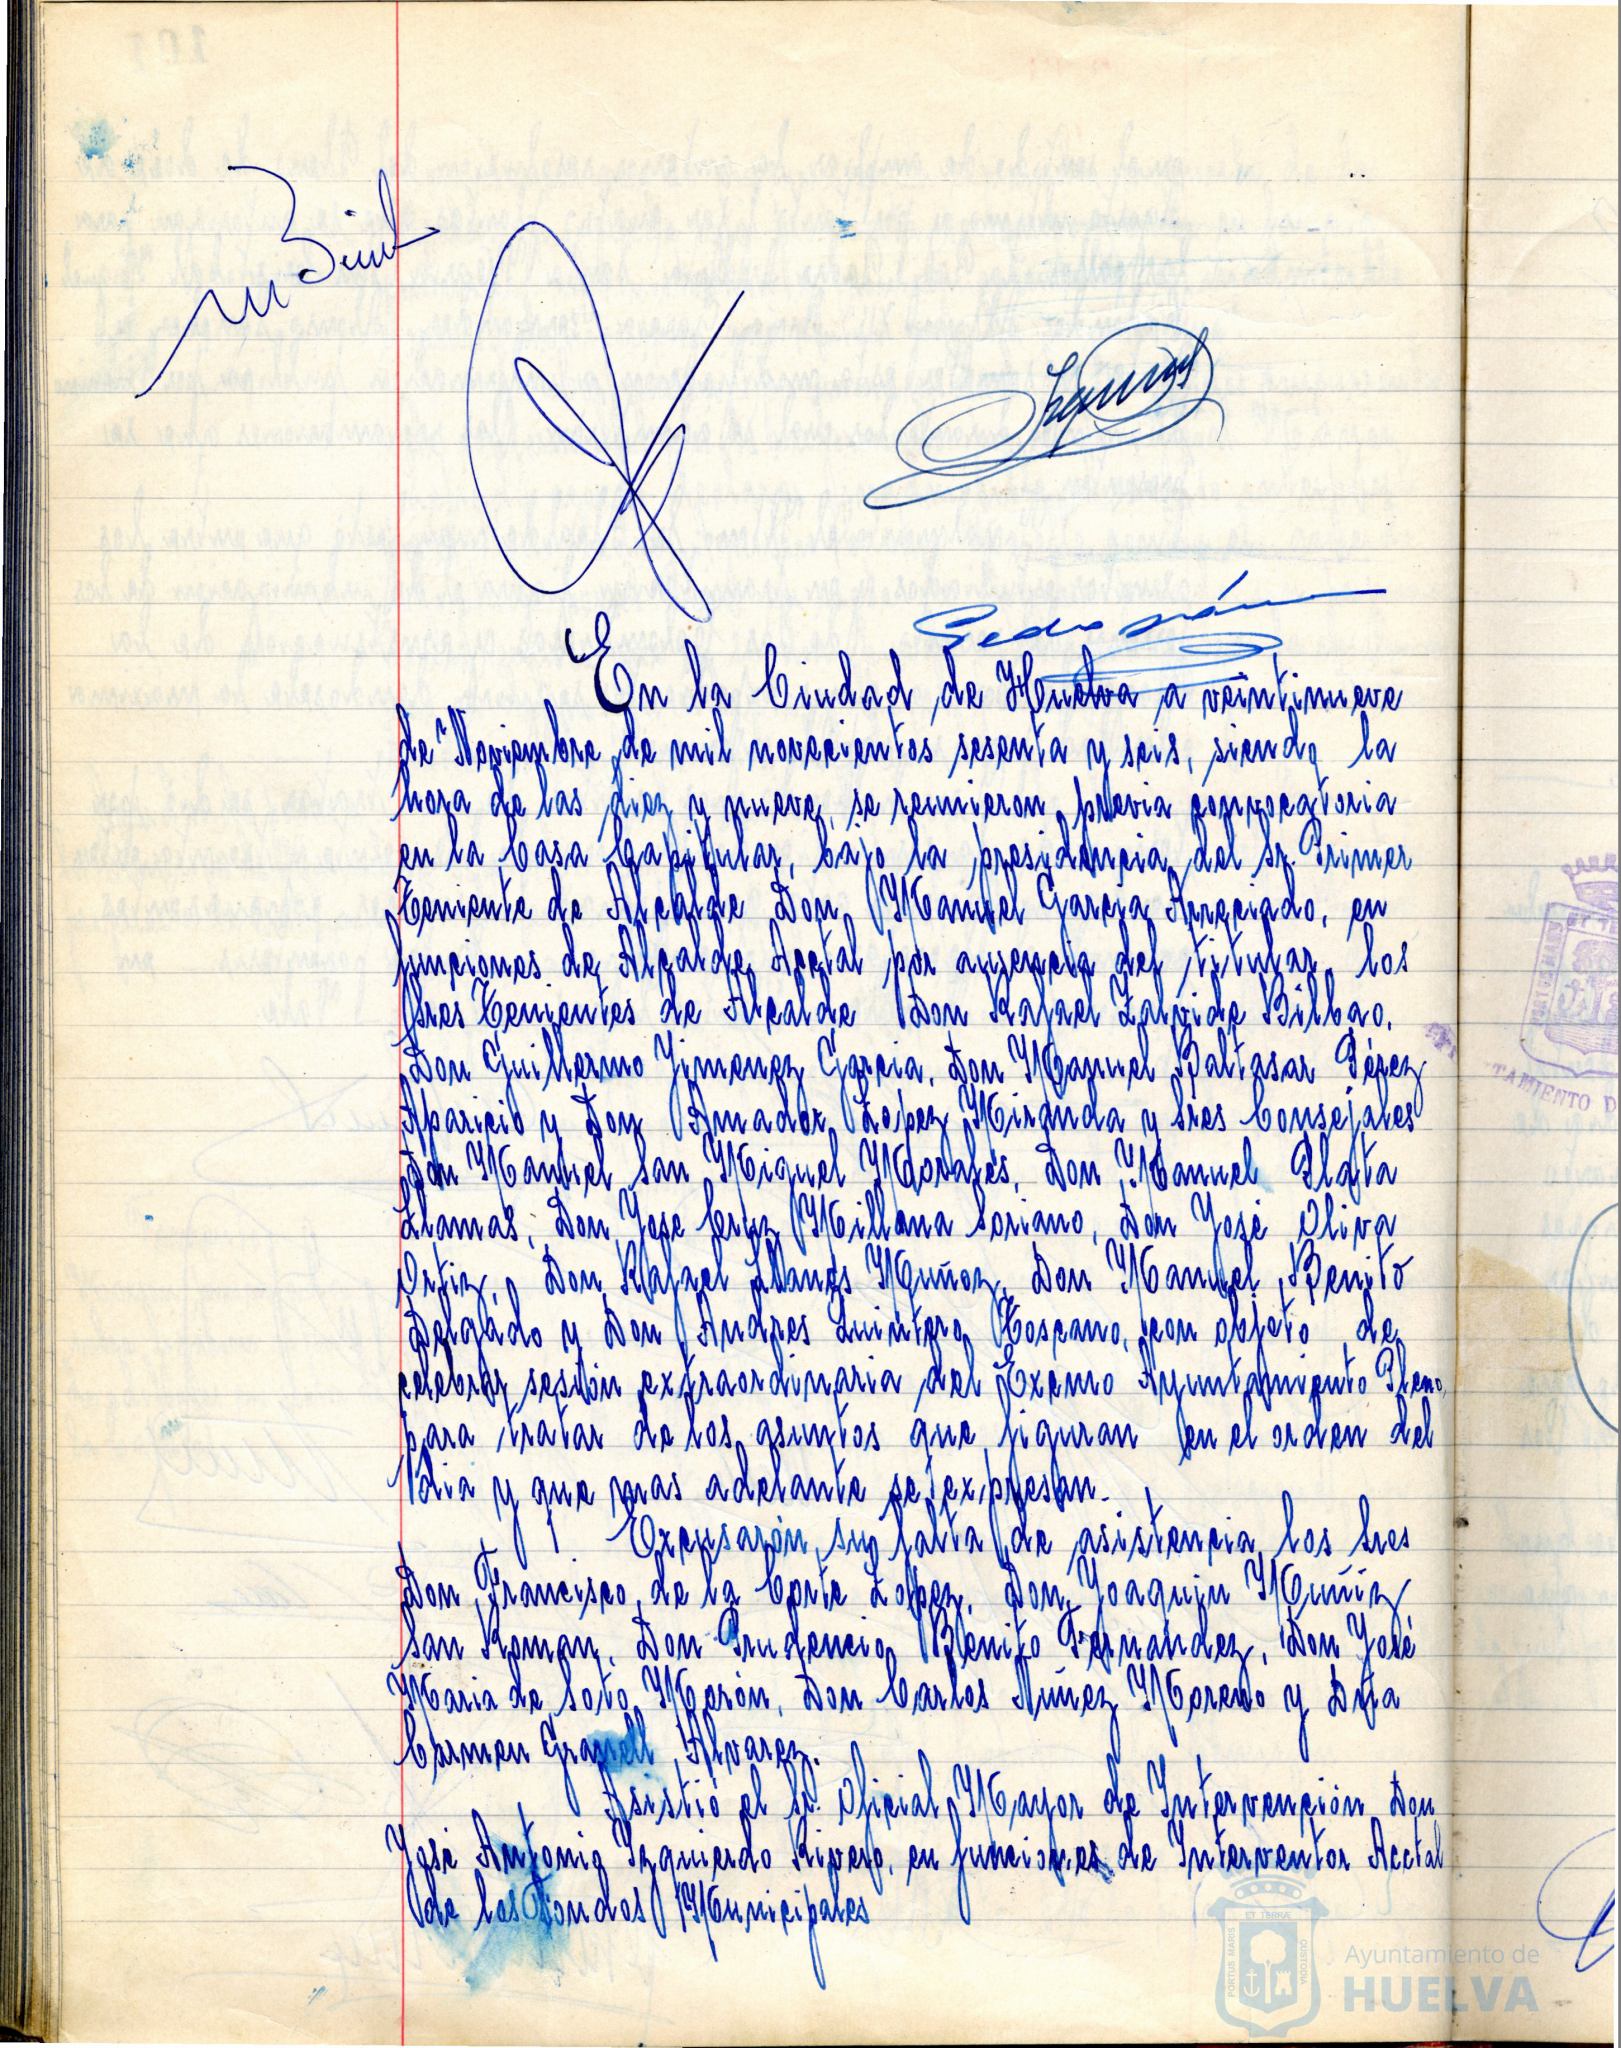 En la Ciudad de Huelva a veintinueve
de Noviembre de mil novecientos sesenta y seis, siendo la
hora de las diez y nueve, se reunieron previa convocatoria
en la Casa Capitular, bajo la presidencia del Sr. Primer
Teniente de Alcalde Don Manuel Garcia Arreciado, en
funciones de Alcalde Acctal por ausencia del titular, los
Sres Tenientes de Alcalde Don Rafael Zalvide Bilbao,
Don Guillermo Jimenez Garcia, Don Manuel Baltasar Pérez
Aparicio y Don Amador Lopez Miranda y Sres Consejales
Don Manuel San Miguel Morales, Don Manuel Plata
Llamas, Don Jose Cruz Millana Soriano, Don José Oliva
Ortiz, Don Rafael Llanes Muñoz, Don Manuel Benito
Delgado y Don Andres Quintero Toscano, con objeto de
celebrar sesión extraordinaria del Excmo Ayuntamiento Pleno,
para tratar de los asuntos que figuran en el orden del
dia y que mas adelante se expresan.
Excusarón su falta de asistencia los Sres
Don Francisco de la Corte Lopez, Don Joaquin Muñiz
San Roman, Don Prudencio Benito Fernandez, Don José
Maria de Soto Morón, Don Carlos Núñez Moreno y Dña
Carmen Granell Alvarez.
Asistió el Sr. Oficial Mayor de Intervención Don
José Antonio Izquierdo Rivero, en funciones de Interventor Acctal
de los Fondos Municipales
TAMIENTO D
PORTUS MARIS
ET TERRÆ
CUSTODIA
Ayuntamiento de
HUELVA